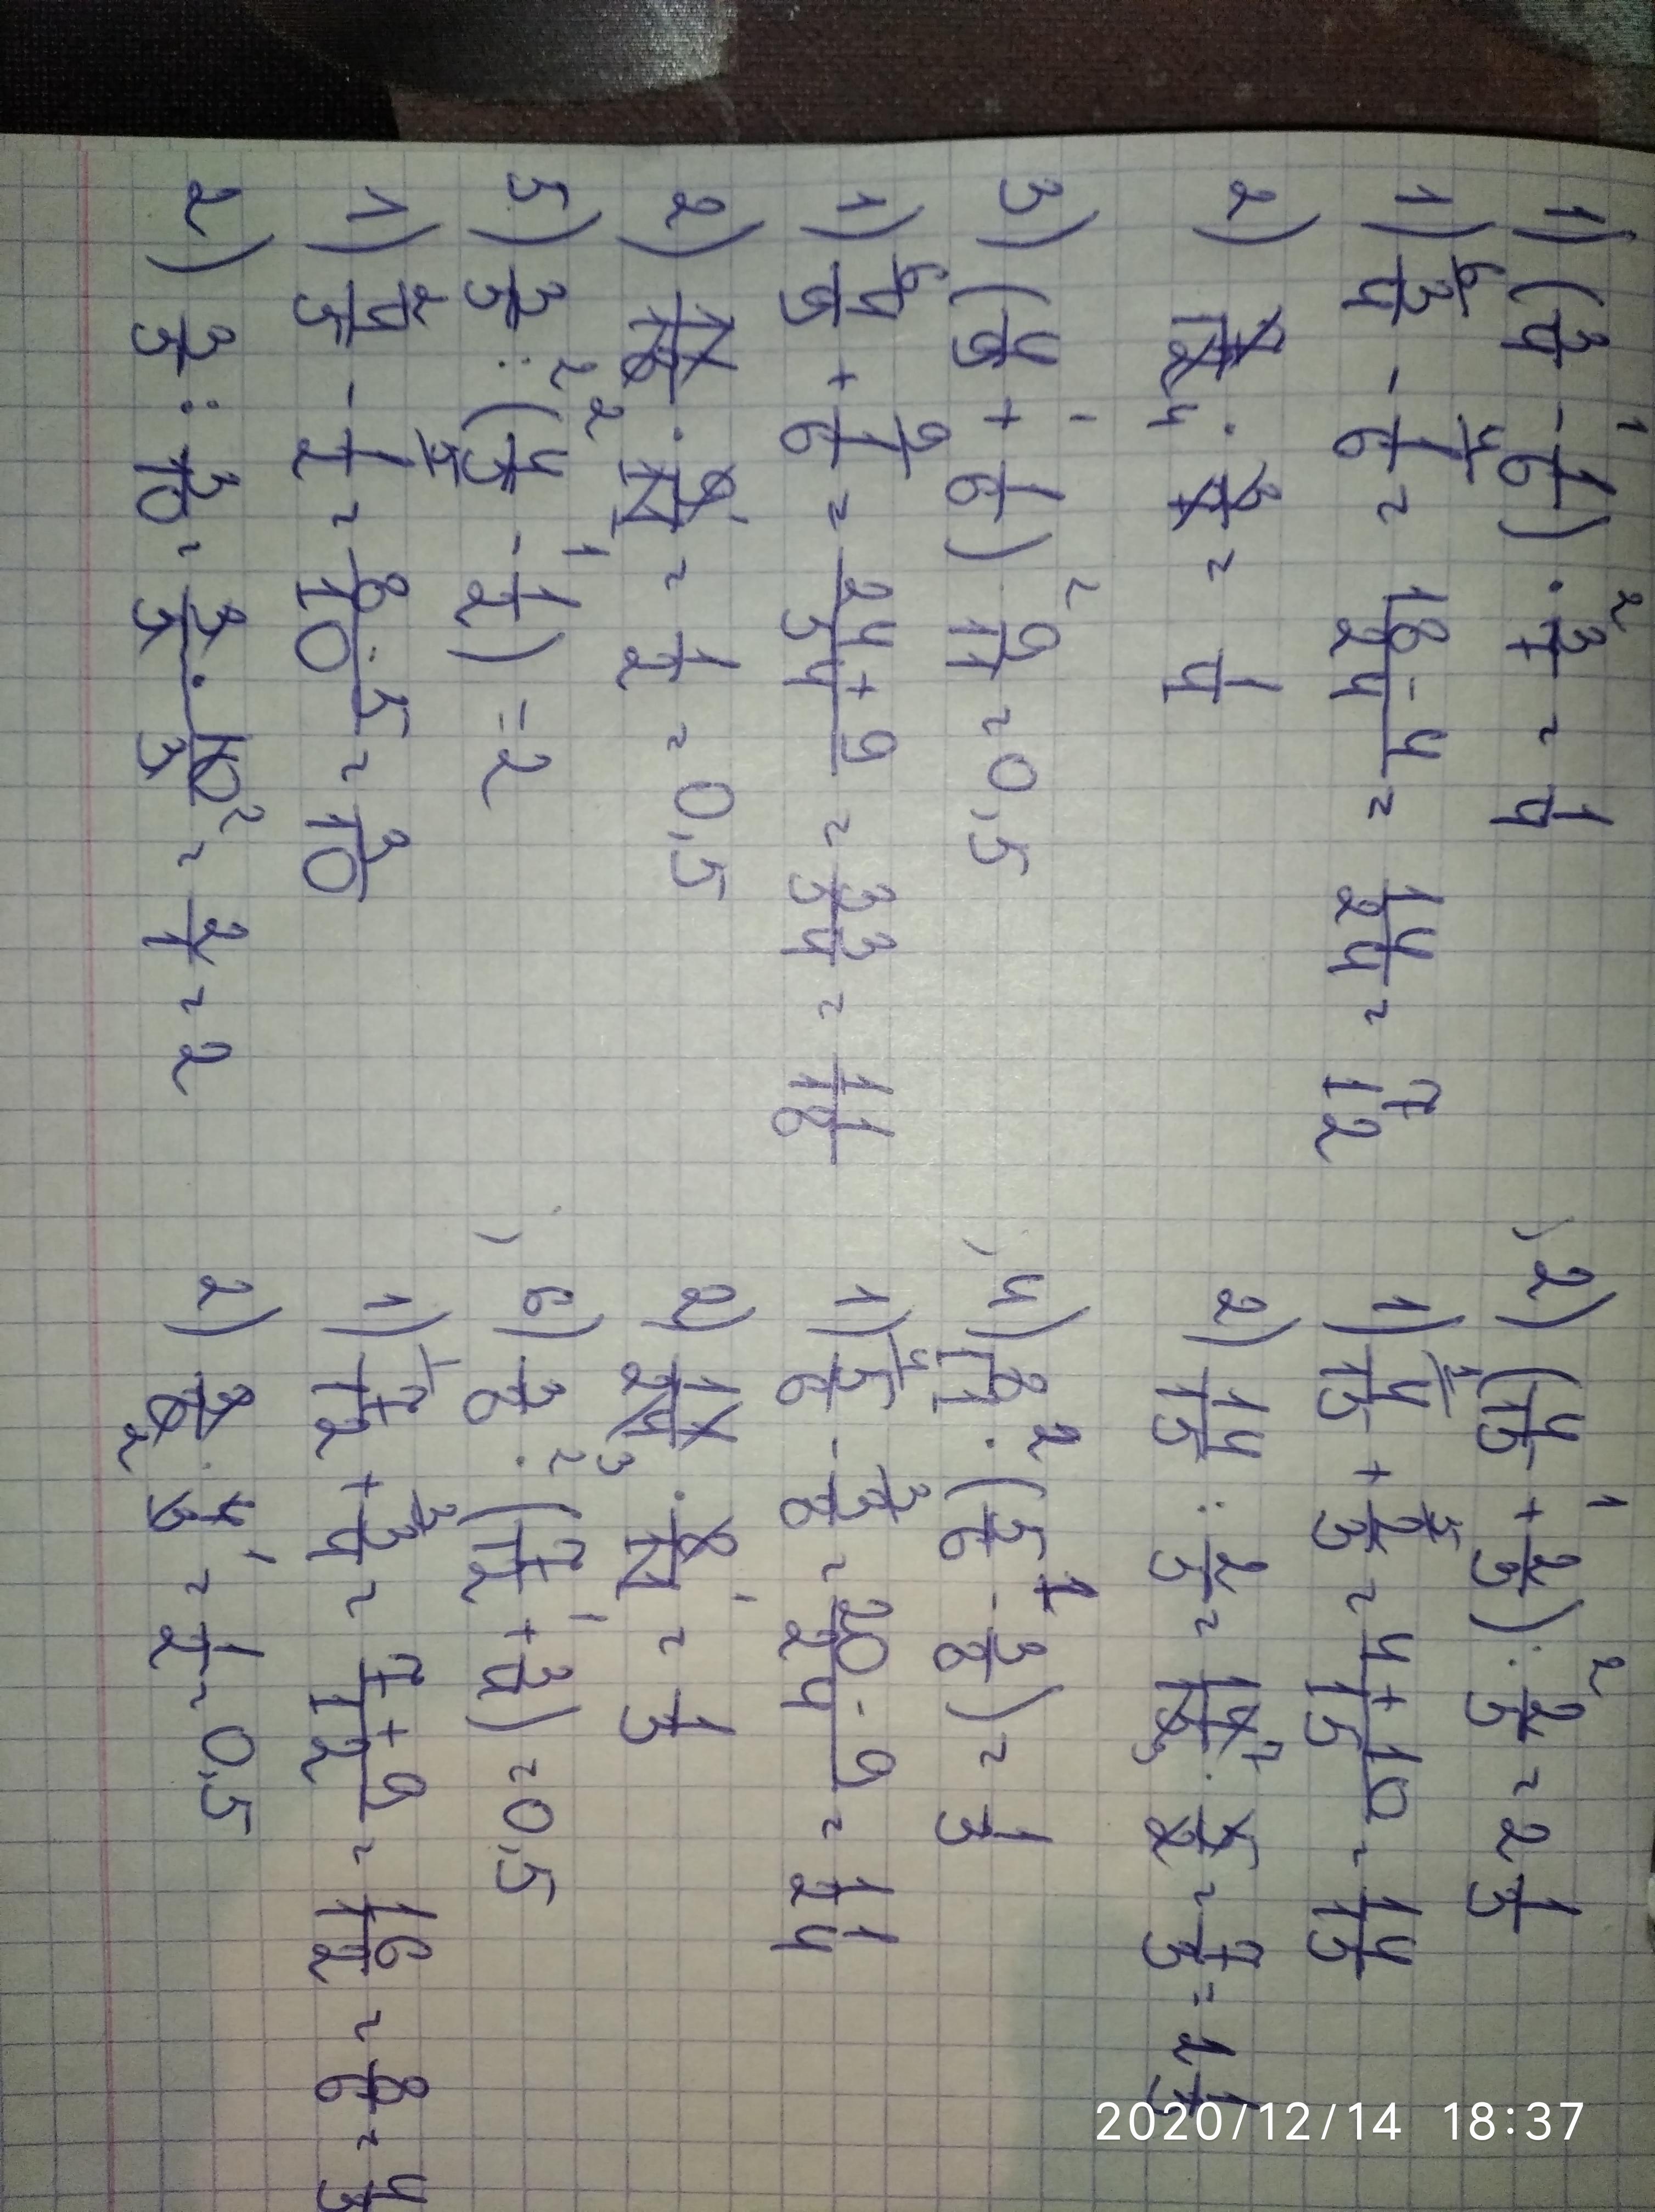 1) (3/4 - 1/6) · 3/7 = 1/4
1) 3/4 - 1/6 = 18-4/24 = 14/24 = 7/12
2) 7/12 · 3/7 = 1/4
3) (4/9 + 1/6) · 9/11 = 0,5
1) 4/9 + 1/6 = 24+9/54 = 33/54 = 11/18
2) 11/18 · 9/11 = 1/2 = 0,5
5) 3/5 : (4/5 - 1/2) = 2
1) 4/5 - 1/2 = 8-5/10 = 3/10
2) 3/5 : 3/10 = 3/5 · 10/3 = 2/1 = 2
2) (4/15 + 2/3) : 2/5 = 2 1/3
1) 4/15 + 2/3 = 4+10/15 = 14/15
2) 14/15 : 2/5 = 14/15 · 5/2 = 7/3 = 2 1/3
4) 8/11 · (5/6 - 3/8) = 1/3
1) 5/6 - 3/8 = 20-9/24 = 11/24
2) 11/24 · 8/11 = 1/3
6) 3/8 : (7/12 + 3/4) = 0,5
1) 7/12 + 3/4 = 7+9/12 = 16/12 = 8/6 = 4/3
2) 3/8 · 4/3 = 1/2 = 0,5
2020/12/14 18:37